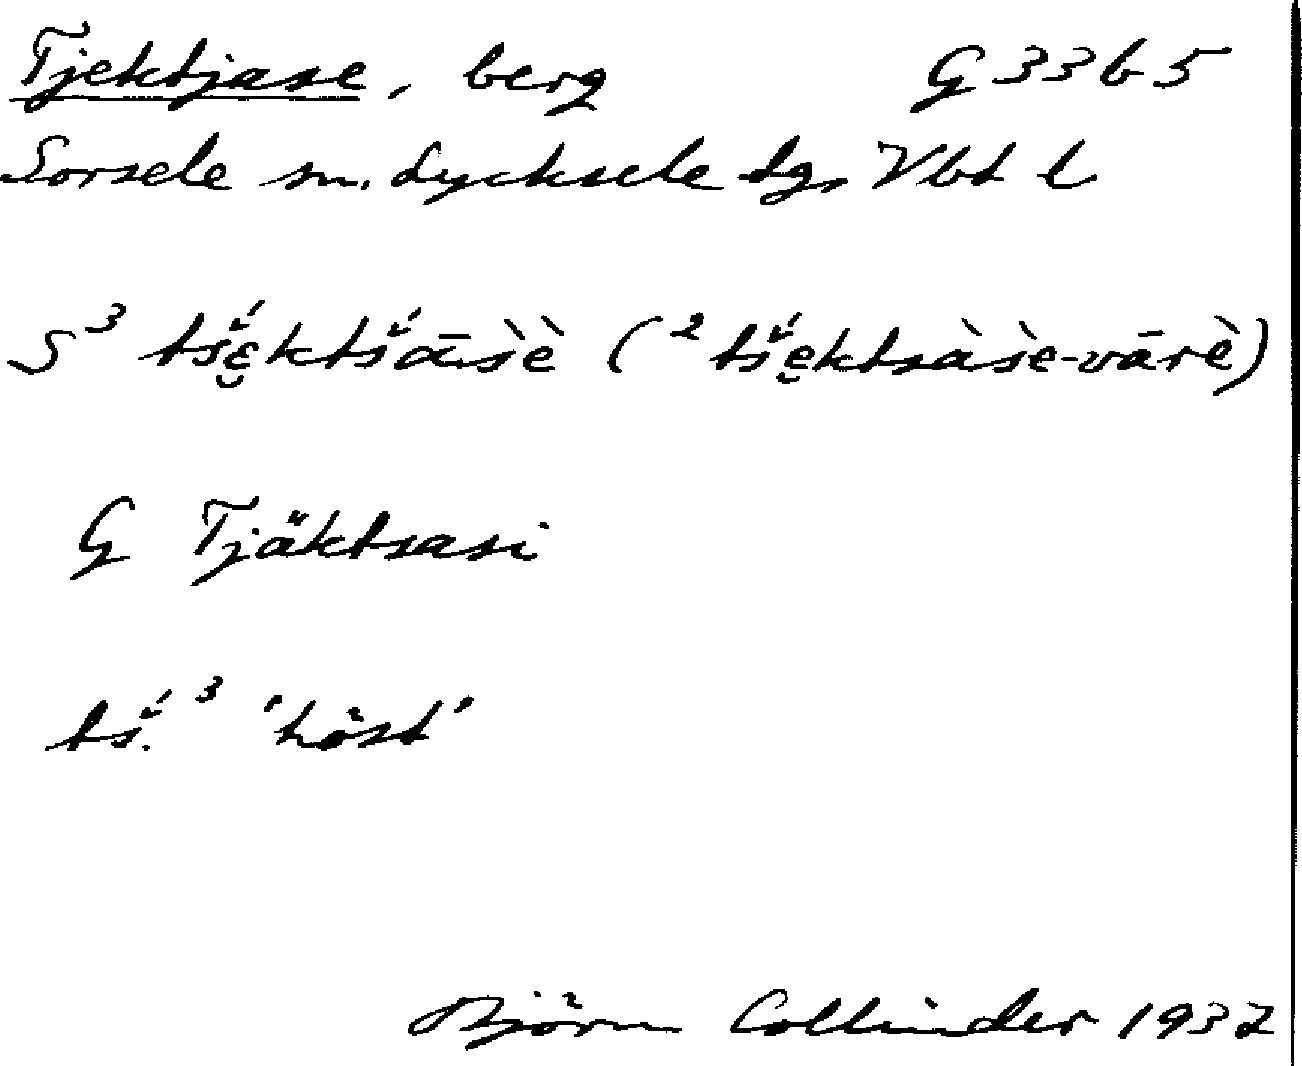 Tjektjase, berg G 33 b 5
Sorsele sn. Lycksele lg, Vbt l
S ³ tš́ɛ̮ktš́āsè̀ (² tš́e̮ktsàsè-vārè)
G Tjäktsasi
tš́. ³ 'höst'
Björn Collinder 1937